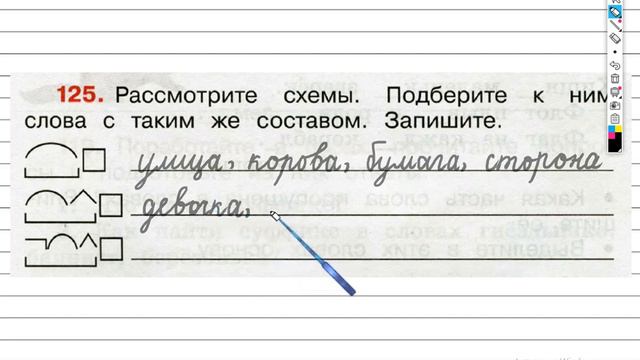 125. Рассмотрите схемы. Подберите к ним
слова с таким же составом. Запишите.
улица, корова, бумага, сторона
девочка,